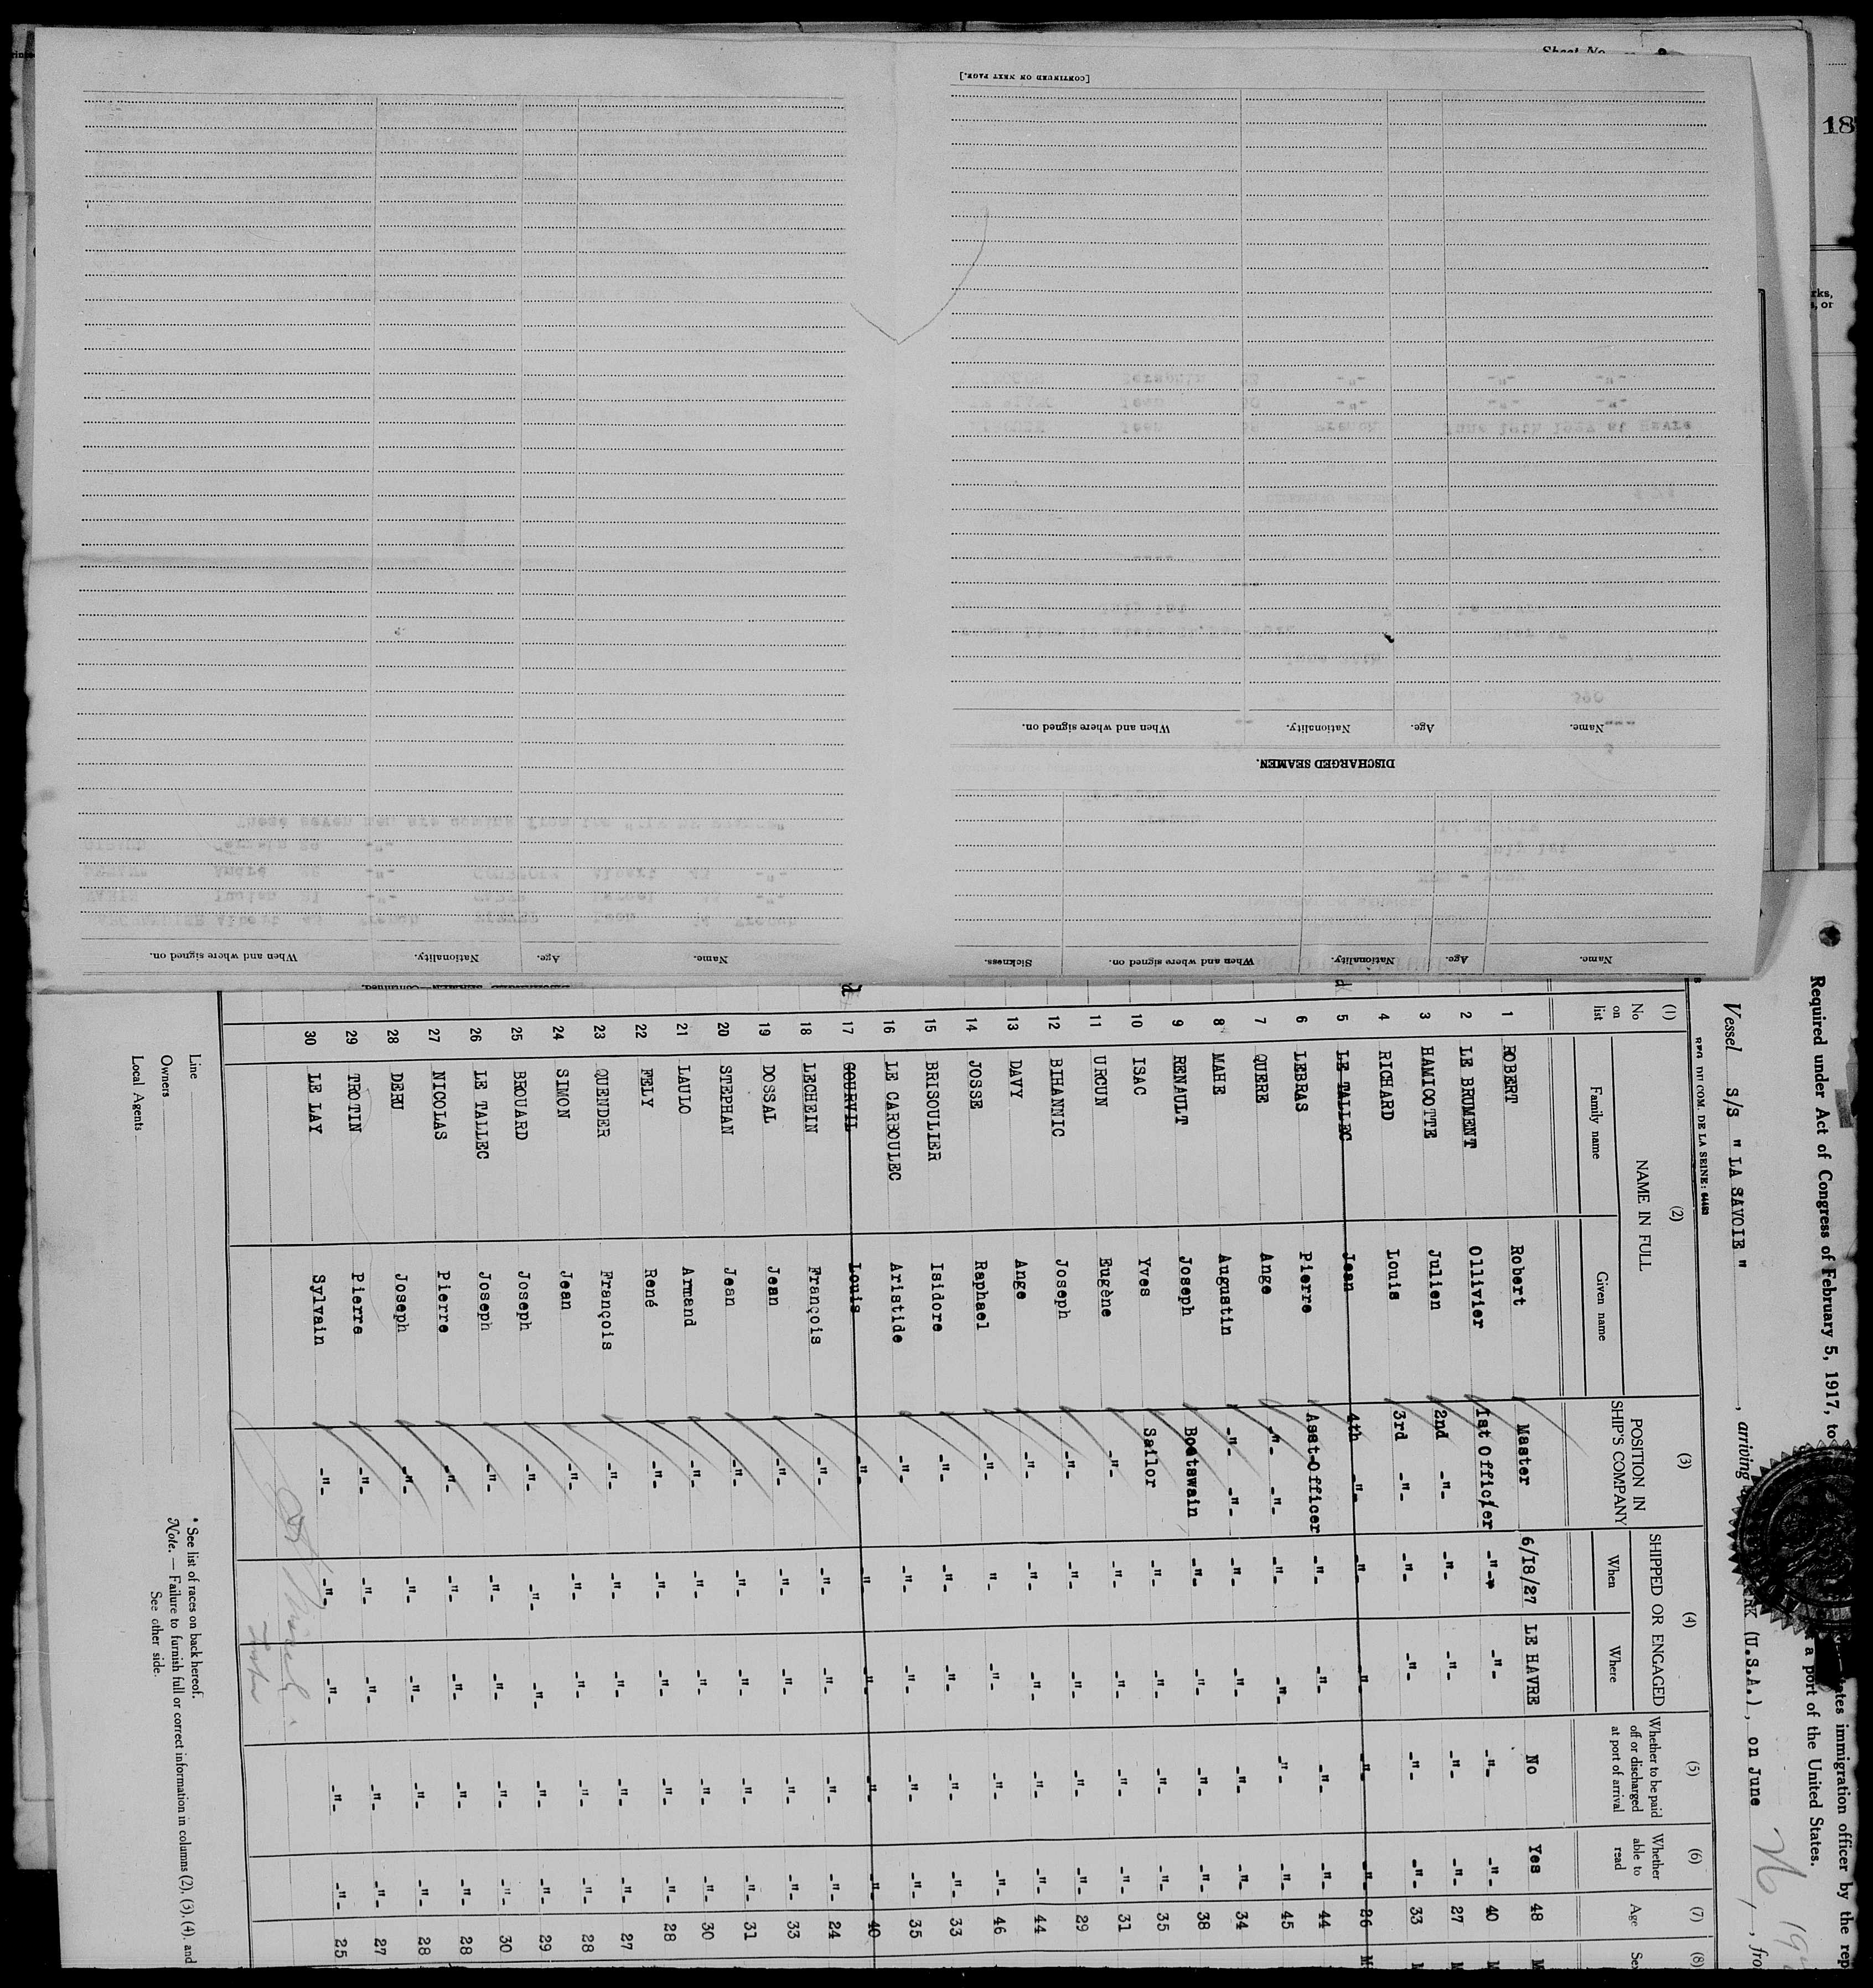 Sheet No.
18
rks,
s, or
[CONTINUED ON NEXT PAGE.]
Name. Age. Nationality. When and where signed on.
DISCHARGED SEAMEN.
Name. Age. Nationality. When and where signed on. Sickness.
Name. Age. Nationality. When and where signed on.
Required under Act of Congress of February 5, 1917, to
ates immigration officer by the rep
a port of the United States.
Vessel S/S " LA SAVOIE " , arriving RK (U.S.A.), on June 26, 192 , fro
REG. DU COM. DE LA SEINE:
(1) (2) (3) (4) (5) (6) (7) (8)
No on list NAME IN FULL POSITION IN SHIP'S COMPANY SHIPPED OR ENGAGED Whether to be paid off or discharged at port of arrival Whether able to read Age Sex
Family name Given name When Where
1 ROBERT Robert Master 6/18/27 LE HAVRE No Yes 48 M
2 LE BRUMENT Ollivier 1st Officier -"- -"- -"- -"- 40 M
3 HAMICOTTE Julien 2nd -"- -"- -"- -"- -"- 27 M
4 RICHARD Louis 3rd -"- -"- -"- -"- -"- 33 M
5 LE TALLEC Jean 4th -"- -"- -"- -"- -"- 26 M
6 LEBRAS Pierre Asst-Officer -"- -"- -"- -"- 44
7 QUERE Ange -"- -"- -"- -"- -"- -"- 45
8 MAHE Augustin -"- -"- -"- -"- -"- -"- 34
9 RENAULT Joseph Boatswain -"- -"- -"- -"- 38
10 ISAC Yves Sailor -"- -"- -"- -"- 35
11 URCUN Eugène -"- -"- -"- -"- -"- 31
12 BIHANNIC Joseph -"- -"- -"- -"- -"- 29
13 DAVY Ange -"- -"- -"- -"- -"- 44
14 JOSSE Raphael -"- " -"- -"- -"- 46
15 BRISOULIER Isidore -"- -"- -"- -"- -"- 33
16 LE CARBOULEC Aristide -"- -"- -"- -"- -"- 35
17 GOURVIL Louis -"- -"- -"- -"- -"- 40
18 LECHEIN François -"- -"- -"- -"- -"- 24
19 DOSSAL Jean -"- -"- -"- -"- -"- 33
20 STEPHAN Jean -"- -"- -"- -"- -"- 31
21 LAULO Armand -"- -"- -"- -"- -"- 30
22 FELY René -"- -"- -"- -"- -"- 28
23 QUENDER François -"- -"- -"- -"- -"- 27
24 SIMON Jean -"- -"- -"- -"- -"- 28
25 BROUARD Joseph -"- -"- -"- -"- -"- 29
26 LE TALLEC Joseph -"- -"- -"- -"- -"- 30
27 NICOLAS Pierre -"- -"- -"- -"- -"- 28
28 DERU Joseph -"- -"- -"- -"- -"- 28
29 TROTIN Pierre -"- -"- -"- -"- -"- 27
30 LE LAY Sylvain -"- -"- -"- -"- -"- 25
Line
Owners
Local Agents
* See list of races on back hereof.
Note. — Failure to furnish full or correct information in columns (2), (3), (4), and
See other side.